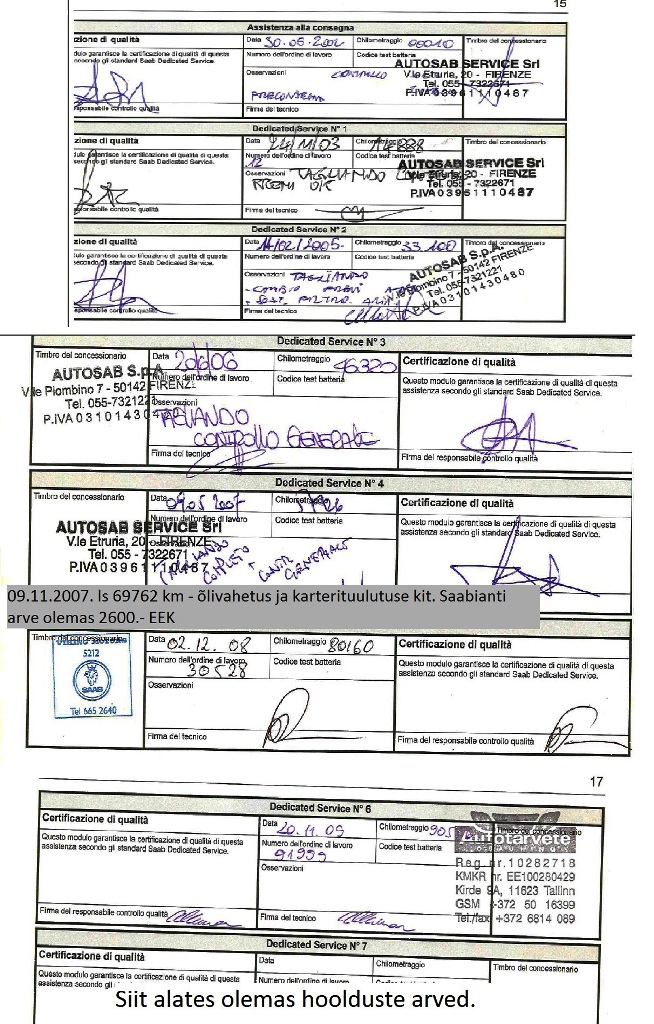 15
Assistenza alla consegna
zione di qualità
Data 30.05.2002
Chilometraggio 00010
Timbro del concessionario
dulo garantisce la certificazione di qualità di questa
secondo gli standard Saab Dedicated Service.
Numero dell'ordine di lavoro
Codice test batteria
AUTOSAB SERVICE Srl
V.le Etruria, 20 - FIRENZE
Tel. 055-7322671
P.IVA 03961110487
Osservazioni CONTROLLO
PRECONSEGNA
sponsabile controllo qualità
Firma del tecnico
Dedicated Service N° 1
zione di qualità
Data
Chilometraggio
Timbro del concessionario
dulo garantisce la certificazione di qualità di questa
secondo gli standard Saab Dedicated Service.
Numero dell'ordine di lavoro
12
Codice test batteria
AUTOSAB SERVICE Srl
V.le Etruria, 20 - FIRENZE
Tel. 055 - 7322671
P.IVA 03961110487
Osservazioni TAGLIANDO
sponsabile controllo qualità
Firma del tecnico
Dedicated Service N° 2
zione di qualità
Data 11/02/2005-
Chilometraggio 33.100
Timbro del concessionario
dulo garantisce la certificazione di qualità di questa
secondo gli standard Saab Dedicated Service.
Numero dell'ordine di lavoro
Codice test batteria
AUTOSAB S.p.A.
V.le Piombino 7 - 50142 FIRENZE
Tel. 055-7321221
P.IVA 03101430480
Osservazioni TAGLIANDO
- CAMBIO FRENI
- SOST. FILTRO ARIA
sponsabile controllo qualità
Firma del tecnico
Dedicated Service N° 3
Timbro del concessionario
Data 20/6/06
Chilometraggio 46320
Certificazione di qualità
AUTOSAB S.p.A.
V.le Piombino 7 - 50142 FIRENZE
Tel. 055-7321221
P.IVA 03101430480
Numero dell'ordine di lavoro
Codice test batteria
Questo modulo garantisce la certificazione di qualità di questa
assistenza secondo gli standard Saab Dedicated Service.
Osservazioni
CONTROLLO GENERALE
Firma del tecnico
Firma del responsabile controllo qualità
Dedicated Service N° 4
Timbro del concessionario
Data 09.05 2007
Chilometraggio
Certificazione di qualità
Numero dell'ordine di lavoro
Codice test batteria
Questo modulo garantisce la certificazione di qualità di questa
assistenza secondo gli standard Saab Dedicated Service.
AUTOSAB SERVICE Srl
V.le Etruria, 20 - FIRENZE
Tel. 055 - 7322671
P.IVA 03961110487
COMPLETO
GENERALE
09.11.2007. ls 69762 km - õlivahetus ja karterituulutuse kit. Saabianti
arve olemas 2600.- EEK
Timbro del concessionario
Data 02.12.08
Chilometraggio 80160
Certificazione di qualità
5212
SAAB
Tel 665 2640
Numero dell'ordine di lavoro
30528
Codice test batteria
Questo modulo garantisce la certificazione di qualità di questa
assistenza secondo gli standard Saab Dedicated Service.
Osservazioni
Firma del tecnico
Firma del responsabile controllo qualità
17
Dedicated Service N° 6
Certificazione di qualità
Data 20.11.09
Chilometraggio
Timbro del concessionario
Questo modulo garantisce la certificazione di qualità di questa
assistenza secondo gli standard Saab Dedicated Service.
Numero dell'ordine di lavoro
91999
Codice test batteria
Autotarvete
Reg. nr. 10282718
KMKR nr. EE100280429
Kirde 9A, 11623 Tallinn
GSM +372 50 16399
Tel./fax +372 6814 089
Osservazioni
Firma del responsabile controllo qualità
Firma del tecnico
Dedicated Service N° 7
Certificazione di qualità
Data
Chilometraggio
Timbro del concessionario
Questo modulo garantisce la certificazione di qualità di questa
assistenza secondo gli
Numero dell'ordine di lavoro
Codice test batteria
Siit alates olemas hoolduste arved.